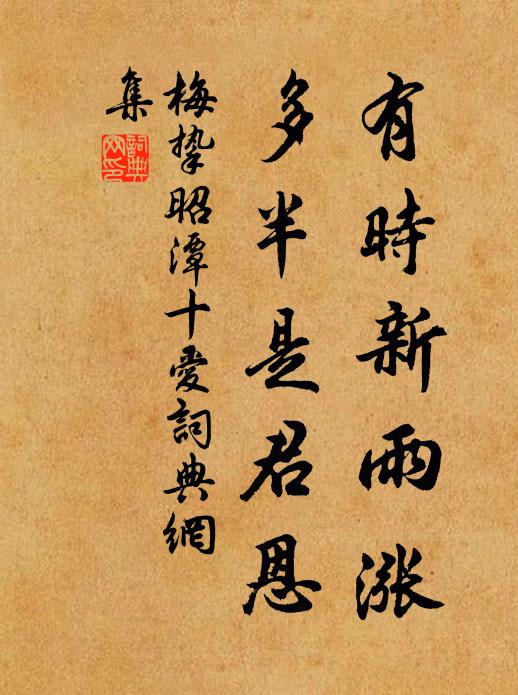 有時新雨漲
多半是君恩
梅摯昭潭十愛詞典網
集
詞典
网印